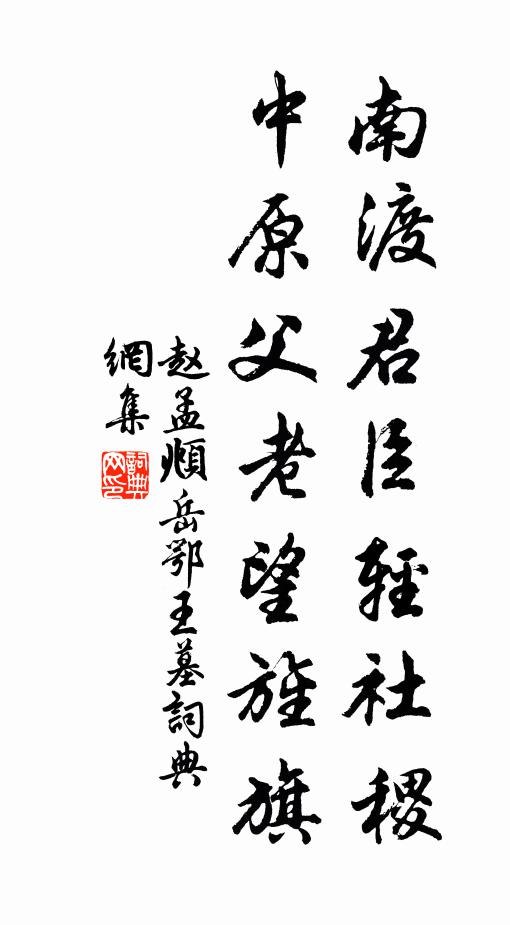 南渡君臣輕社稷
中原父老望旌旗
赵孟頫岳鄂王墓詞典
網集
詞典
网印